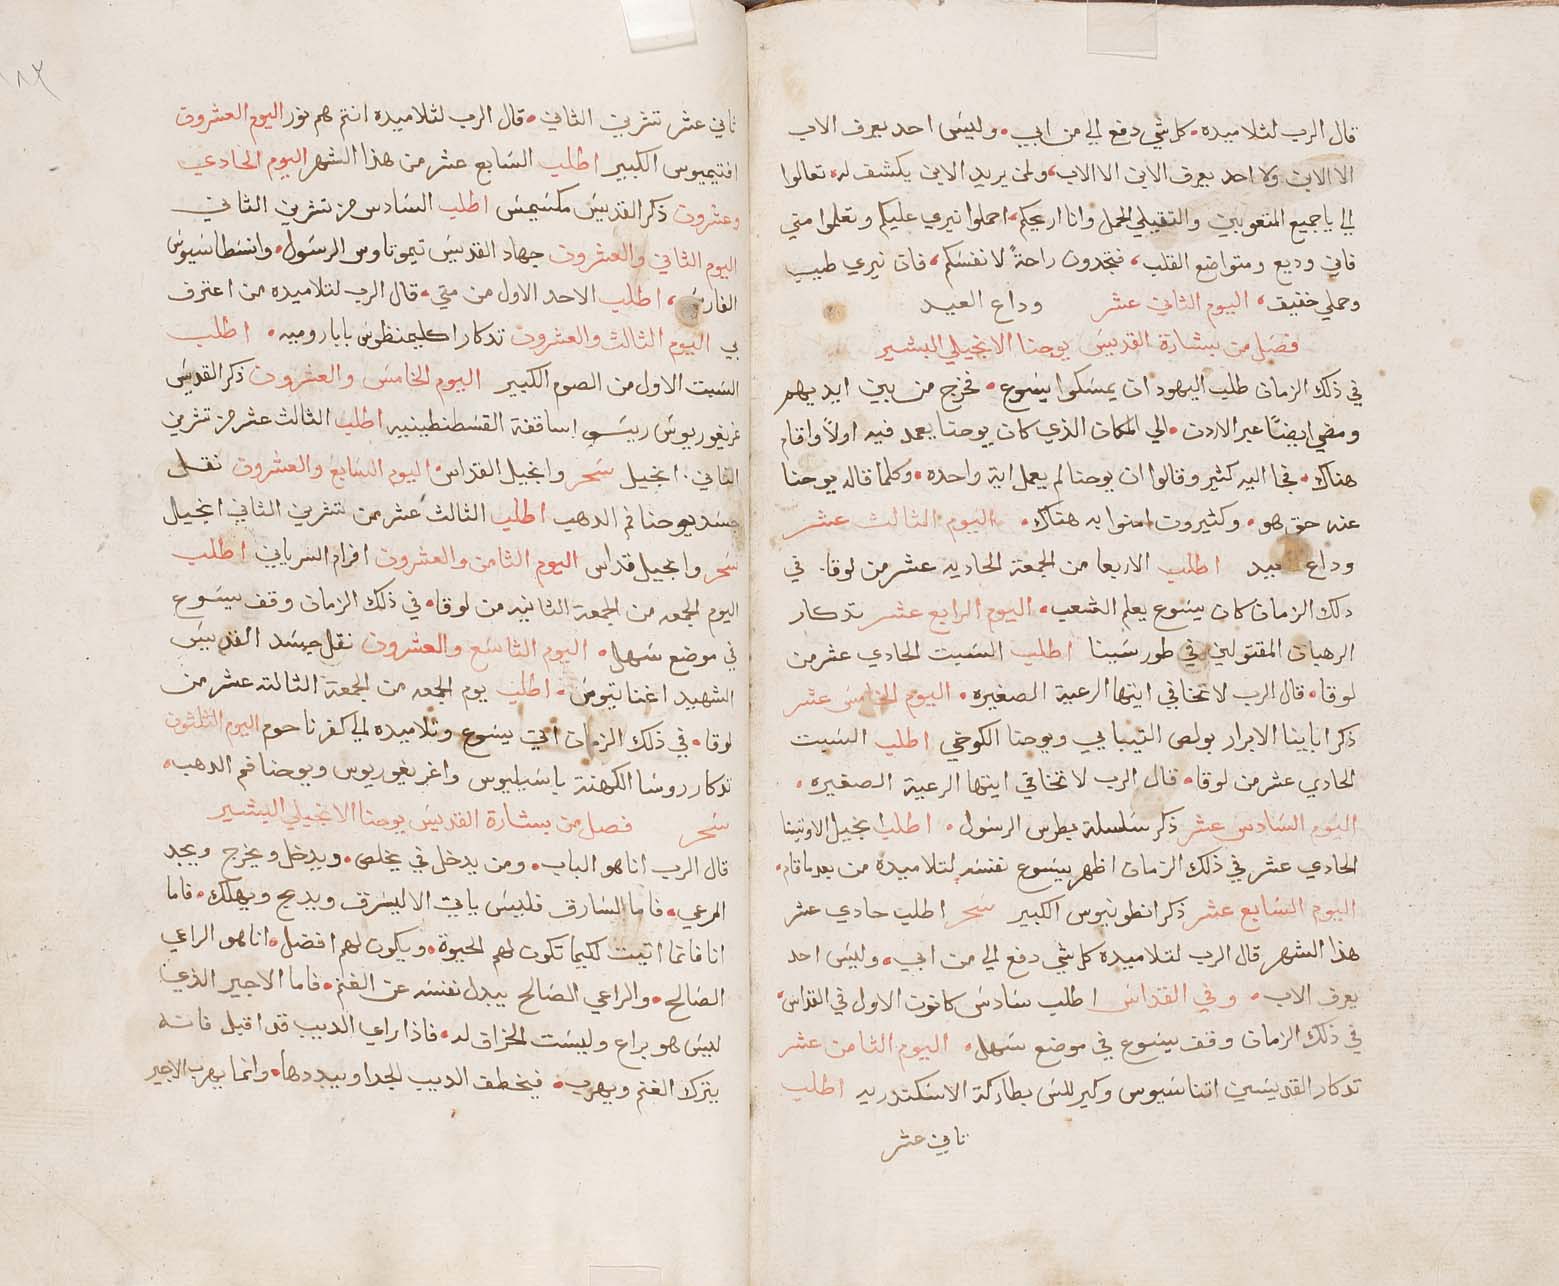 قال الرب لتلاميده • كل شي دفع لي من ابي • وليس احد يعرف الاب
الا الابن ولا احد يعرف الابن الا الاب، ولمن يريد الابن يكشف له • تعالوا
لي يا جميع المتعوبين والتقيلي الحمل وانا اريحكم، احملوا نيري عليكم وتعلموا مني
فاني وديع ومتواضع القلب، فتجدون راحةً لانفسكم، فان نيري طيب
وحملي خفيف، اليوم الثاني عشر وداع العيد
فصل من بشارة القديس يوحنا الانجيلي البشير
في ذلك الزمان طلب اليهود ان يمسكوا يسوع • فخرج من بين ايديهم
ومضي ايضًا عبر الاردن • الي المكان الذي كان يوحنا يعمد فيه اولاً واقام
هناك • فجا اليه كثير وقالوا ان يوحنا لم يعمل اية واحده • وكلما قاله يوحنا
عنه حق هو • وكثيرون امنوا به هناك • اليوم الثالث عشر
وداع العيد اطلب الاربعا من الجمعة الحاديه عشر من لوقا • في
دلك الزمان كان يسوع يعلم الشعب • اليوم الرابع عشر تدكار
الرهبان المقتولين في طور سينا اطلب السبت الحادي عشر من
لوقا • قال الرب لا تخافي ايتها الرعية الصغيره • اليوم الخامس عشر
ذكر ابائنا الابرار بولص التيبايي ويوحنا الكوخي اطلب السبت
الحادي عشر من لوقا • قال الرب لا تخافي ايتها الرعية الصغيره •
اليوم السادس عشر ذكر سلسلة بطرس الرسول • اطلب انجيل الاوثينا
الحادي عشر في ذلك الزمان اظهر يسوع نفسه لتلاميده من بعد ما قام •
اليوم السابع عشر ذكر انطونيوس الكبير سحر اطلب حادي عشر
هذا الشهر قال الرب لتلاميده كل شي دفع لي من ابي • وليس احد
يعرف الاب • وفي القداس اطلب سادس كانون الاول في القداس •
في ذلك الزمان وقف يسوع في موضع سهل • اليوم الثامن عشر
تدكار القديسين اتناسيوس وكيرللس بطاركة الاسكندريه اطلب
تاني عشر
١٨٢
تاني عشر تشرين الثاني • قال الرب لتلاميده انتم هم نور اليوم العشرون
افتيميوس الكبير اطلب السابع عشر من هذا الشهر اليوم الحادي
وعشرون ذكر القديس مكسيمس اطلب السادس من تشرين الثاني
اليوم الثاني والعشرون جهاد القديس تيموتاوس الرسول • وانسطاسيوس
الفارسي، اطلب الاحد الاول من متي • قال الرب لتلاميده من اعترف
بي اليوم الثالث والعشرون تدكار اكليمنظوس بابا روميه • اطلب
السبت الاول من الصوم الكبير اليوم الخامس والعشرون ذكر القديس
غريغوريوس رييس اساقفة القسطنطينيه اطلب الثالث عشر من تشرين
الثاني • انجيل سحر وانجيل القداس • اليوم السابع والعشرون نقل
جسد يوحنا فم الدهب اطلب الثالث عشر من تشرين الثاني انجيل
سحر وانجيل قداس اليوم الثامن والعشرون افرام السرياني اطلب
اليوم الجمعه من الجمعة الثانيه من لوقا • في ذلك الزمان وقف يسوع
في موضع سهل • اليوم التاسع والعشرون نقل جسد القديس
الشهيد اغناتيوس • اطلب يوم الجمعه من الجمعة الثالثه عشر من
لوقا • في ذلك الزمان اتي يسوع وتلاميده لي كفرناحوم اليوم الثلثون
تدكار روسا الكهنة باسيليوس واغريغوريوس ويوحنا فم الدهب •
سحر فصل من بشارة القديس يوحنا الانجيلي البشير
قال الرب انا هو الباب • ومن يدخل في يخلص • ويدخل ويخرج ويجد
المرعي • فاما السارق فليس ياتي الا ليسرق ويدبح ويهلك • فاما
انا فانما اتيت لكيما تكون لهم الحيوة • ويكون لهم افضل • انا هو الراعي
الصالح • والراعي الصالح يبدل نفسه عن الغنم • فاما الاجير الذي
ليس هو براع وليست الخراف له • فاذا راي الديب قد اقبل فانه
يترك الغنم ويهرب • فيخطف الديب الجدا ويبددها • وانما يهرب الاجير